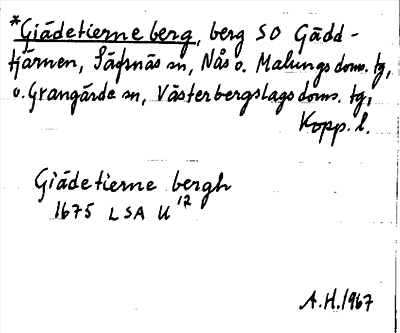 *Giädetierne berg, berg SO Gädd-
tjärnen, Säfsnäs sn, Nås o. Malungs doms. tg,
o. Grangärde sn, Västerbergslags doms. tg,
Kopp. l.
Giädetierne bergh
1675 LSA U 12
A.H. 1967